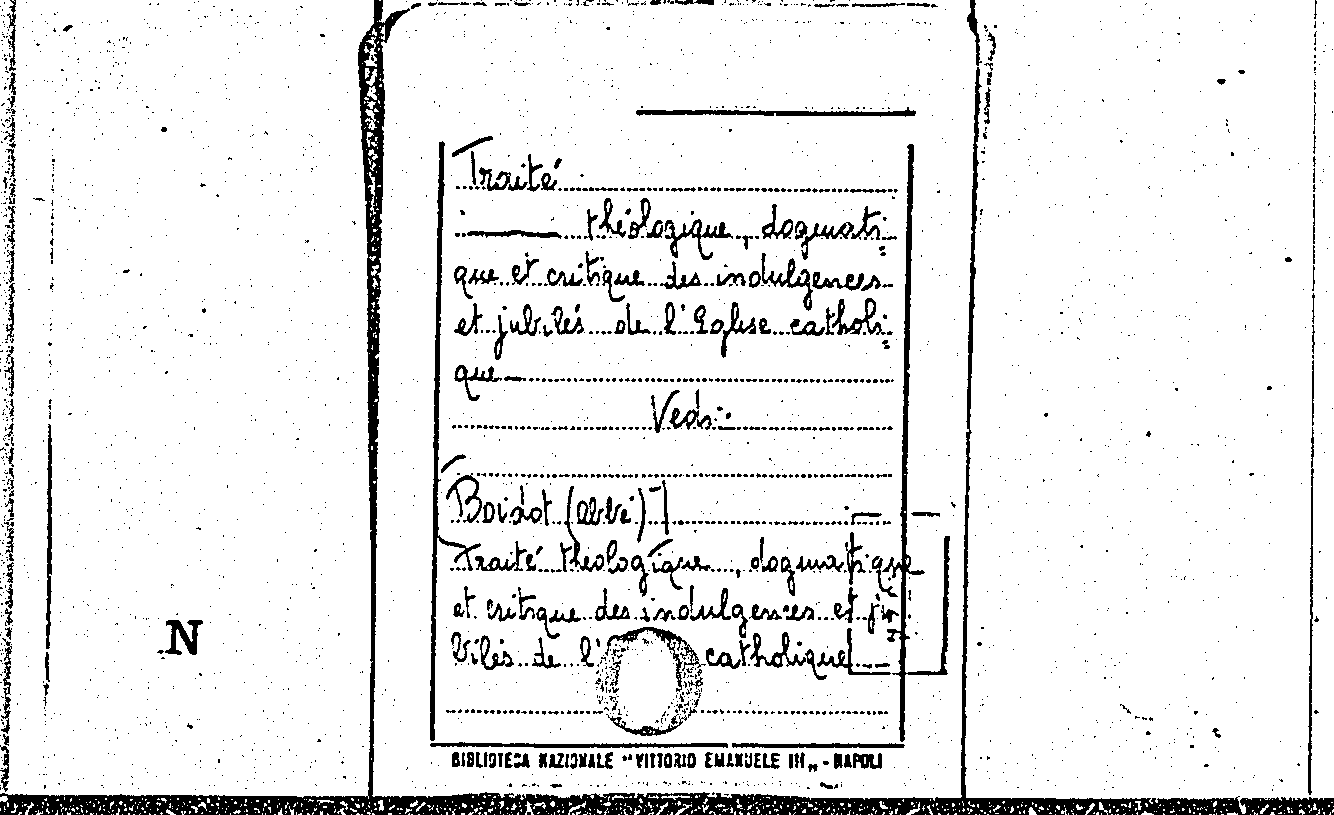 Traité
——— théologique, dogmati=
que et critique des indulgences
et jubilés de l'Eglise catholi=
que
Vedi:
Boidot (abbé) -|
Traité théologique, dogmatique
et critique des indulgences et ju
bilés de l' catholique
N
BIBLIOTECA NAZIONALE "VITTORIO EMANUELE III„ - NAPOLI